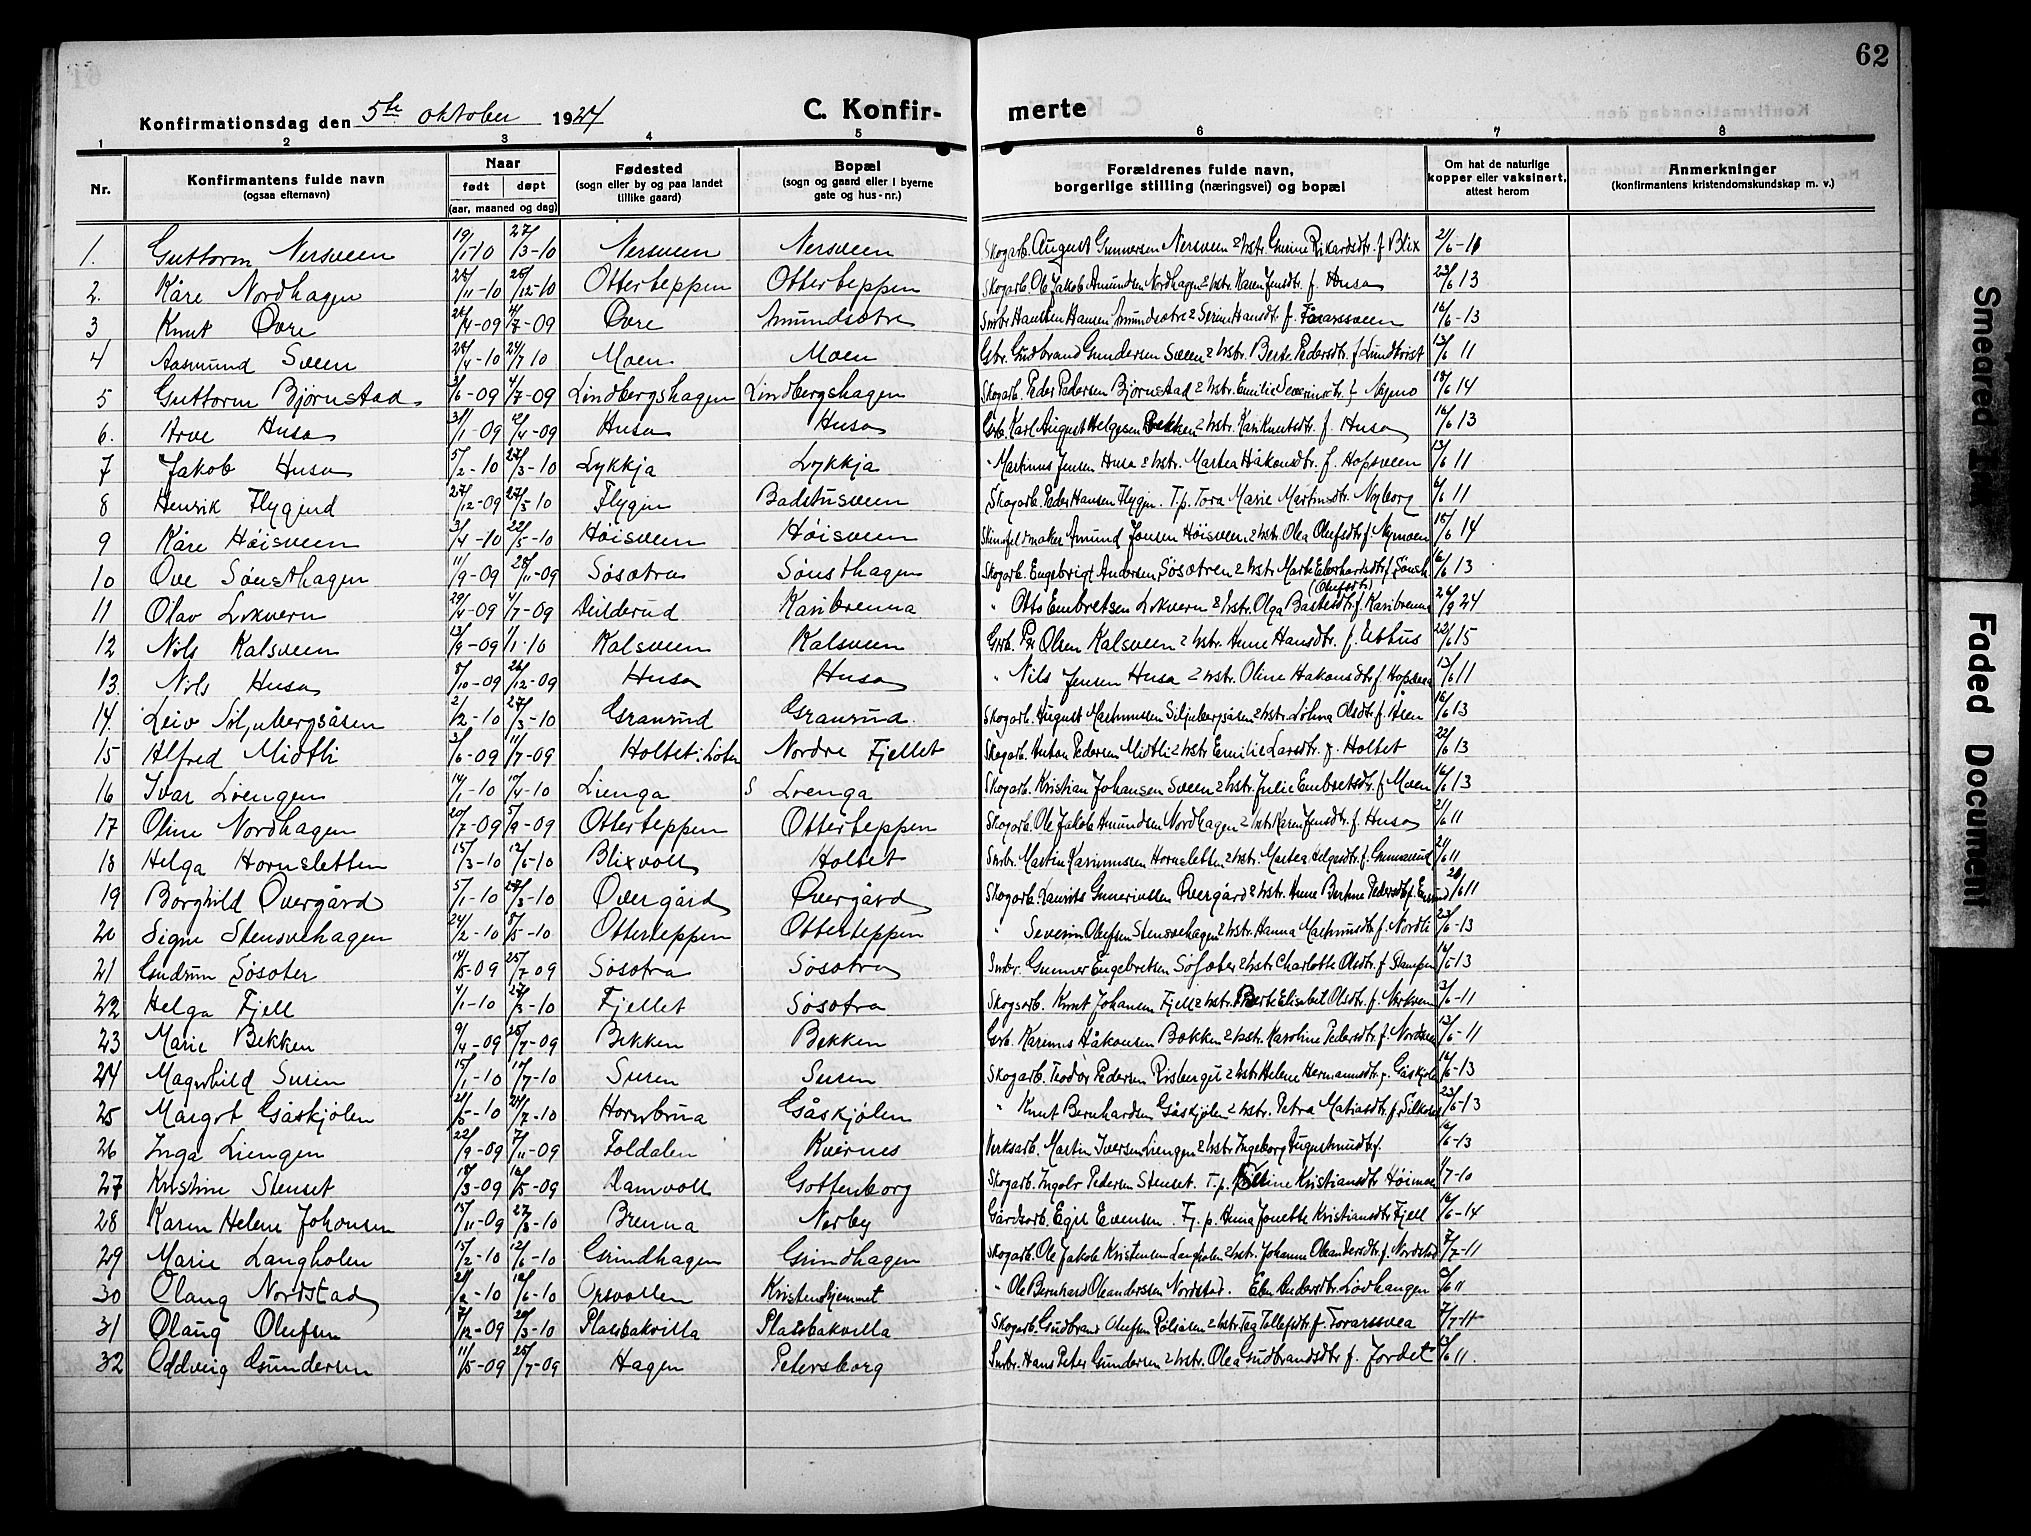 62
Konfirmationsdag den 5te oktober 1924
C. Konfirmerte
1 2 3 4 5 6 7 8
Nr. Konfirmantens fulde navn (ogsaa efternavn) Naar født døpt (aar, maaned og dag) Fødested (sogn eller by og paa landet tillike gaard) Bopæl (sogn og gaard eller i byerne gate og hus-nr.) Forældrenes fulde navn, borgerlige stilling (næringsvei) og bopæl Om hat de naturlige kopper eller vaksinert, attest herom Anmerkninger (konfirmantens kristendomskundskap m. v.)
1. Guttorm Nersveen 19/1-10 27/3-10 Nersveen Nersveen Skogarb. August Gunnersen Nersveen & hstr. Gurine Rikardsdtr. f. Blix
2. Kåre Nordhagen 25/11-10 26/12-10 Otterteppen Otterteppen Skogarb. Ole Jakob Amundsen Nordhagen & hstr. Karen Jensdtr. f. Husa 23/6 13
3 Knut Øvre 4/7-09 Øvre Smbr. Hansen 16/6-13
4 Aasmund Sveen 24/7 10 Moen Moen Gbr. Gudbrand Gundersen Sveen & hstr. Berte Pedersdtr. f. Lundkvist 13/6 11
5 Guttorm Bjørnstad 4/7-09 Lindbergshagen Lindbergshagen Skogarb. Peder Pedersen Bjørnstad & hstr. Emilie f. Nymo 18/6 14
6. Arve Husa 31/1-09 12/4-09 Husa Husa Karl August Helgesen Bekken & hstr. Kari Knutsdtr. f. Husa 16/6 13
7 Jakob Husa 5/2-10 27/3-10 Lykkja Lykkja " Martinus Jensen Husa & hstr. Martea Håkonsdtr. f. Hopsveen 13/6 11
8 Henrik Flygind 27/12-09 27/3 10 Flygin Badstusveen Skogarb. Peder Hansen Flygin. T.p. Tora Marie Martinsdtr. Nyborg 6/6 11
9 Kåre Høisveen 3/4-10 22/5-10 Høisveen Høisveen Amund Jonsen Høisveen & hstr. Olea Olufsdtr. f. Nymoen 18/6 14
10 Ove Sønsthagen 11/9-09 28/11-09 Søsætra Sønsthagen Skogarb. Engebrigt Andersen Søsætren & hstr. Marte Eberhardsdtr. f. Sønsth 16/6 13
11 Olav Løkvern 29/4-09 4/7-09 Deilderud Karibrenna " Otto Embretsen Løkvern & hstr. Olga (Olufsdtr) f. Karibrenna 26/9 24
12 Nils Kalsveen 13/9-09 1/1-10 Kalsveen Kalsveen Grb. Per Olsen Kalsveen & hstr. Anne Hansdtr. f. Utthus 22/6 15
13. Nils Husa 5/10-09 26/12-09 Husa Husa " Nils Jensen Husa & hstr. Oline Håkonsdtr. f. Hopsveen 13/6 11
14. Leiv Siljubergsåsen 2/2-10 27/3-10 Granrud Granrud. Skogarb. August Martinussen Siljubergsåsen & hstr. Olsdtr. f. Åsen 16/6 13
15 Alfred Midtli 3/6-09 11/7-09 Holtet i Løten Nordre Fjellet Skogarb. Anton Pedersen Midtli & hstr. Emilie Larsdtr. f. Holtet 22/6 13
16 Ivar Løengen 14/1-10 10/4-10 Liengа S Løenga Skogarb. Kristian Johansen Sveen & hstr. Julie Embretsdtr. f. Moen 16/6 13
17 Oline Nordhagen 20/7-09 5/9-09 Otterteppen Otterteppen Skogarb. Ole Jakob Amundsen Nordhagen & hstr. Karen Jensdtr. f. Husa 21/6 11
18 Helga Hornsletten 15/3-10 Blixvoll Holtet Smbr. Martin Hornsletten & hstr. Martea Helgesdtr. f. Gunnarud 21/6 11
19 Borghild Øvergård 5/1-10 27/3-10 Øvergård Øvergård Skogarb. Laurits Guneriussen Øvergård & hstr. Anne Bertine Pedersdtr. f. 20/6 11
20 Signe Stensvehagen 24/2-10 5/5-10 Otterteppen Otterteppen " Severin Olufsen Stensvehagen & hstr. Hanna Martinusdtr. f. Nordli 23/6-13
21 Gudrun Søsæter 14/5-09 25/7 09 Søsætra Søsætra Smbr. Gunner Engebretsen Søsæter & hstr. Charlotte Olsdtr. f. Stampen 16/6-13
22 Helga Fjell 4/1-10 27/3-10 Fjellet Søsætra Skogsarb. Knut Johansen Fjell & hstr. Berte Elisabet Olsdtr. f. 13/6-11
23 Marie Bekken 9/4-09 25/7-09 Bekken Bekken Karinus Håkonsen Bækken & hstr. Karoline Pedersdtr. f. Nordsveen 13/6-11
24 Magnhild Suren 15/1-10 10/7-10 Suren Suren Skogarb. Teodor Pedersen Risberget & hstr. Helene Hermannsdtr. f. Gåskjølen 16/6-13
25 Margot Gåskjølen 24/7-10 Hornbrua Gåskjølen " Knut Bernhardsen Gåskjølen & hstr. Petra Matiasdtr. f. 23/6-13
26 Inga Liengen 22/9-09 7/11-09 Foldalen Kvernes Verksarb. Martin Iversen Liengen & hstr. Ingeborg Augustinusdtr. f. 16/6-13
27 Kristine Stenset 18/3-09 16/5-09 Ramvoll Gottenborg Skogarb. Ingolv Pedersen Stenset. T.p. Kristiansdtr. Høimoen 4/7-10
28 Karen Helene Johansen 15/11-09 27/3-10 Brenna Nerby Gårdsarb. Egil Evensen. Fj. p. Anna Jonette Kristiansdtr. Fjell 16/6-14
29 Marie Langholen 15/2-10 12/6-10 Grindhagen Grindhagen Skogarb. Ole Jakob Kristensen Langholen & hstr. Johanne Oleandersdtr. f. Nordstad 7/7-11
30 Olaug Nordstad 12/6-10 Opsvollen Kristenshjemmet " Ole Bernhard Oleandersen Nordstad. Andersdtr. Lødhaugen 11
31 Olaug Olufsen 7/12-09 28/3-10 Platsbakvilla Platsbakvilla Skogarb. Gudbrand Olufsen & hstr. Tea Tollefsdtr. f. Forarssvea 7/7-11
32 Oddveig Gundersen 11/5-09 25/7-09 Hagen Petersborg Smbr. Hans Peter Gundersen & hstr. Olea Gudbrandsdtr. f. Jordet 13/6 11.
Smeared
Faded Document